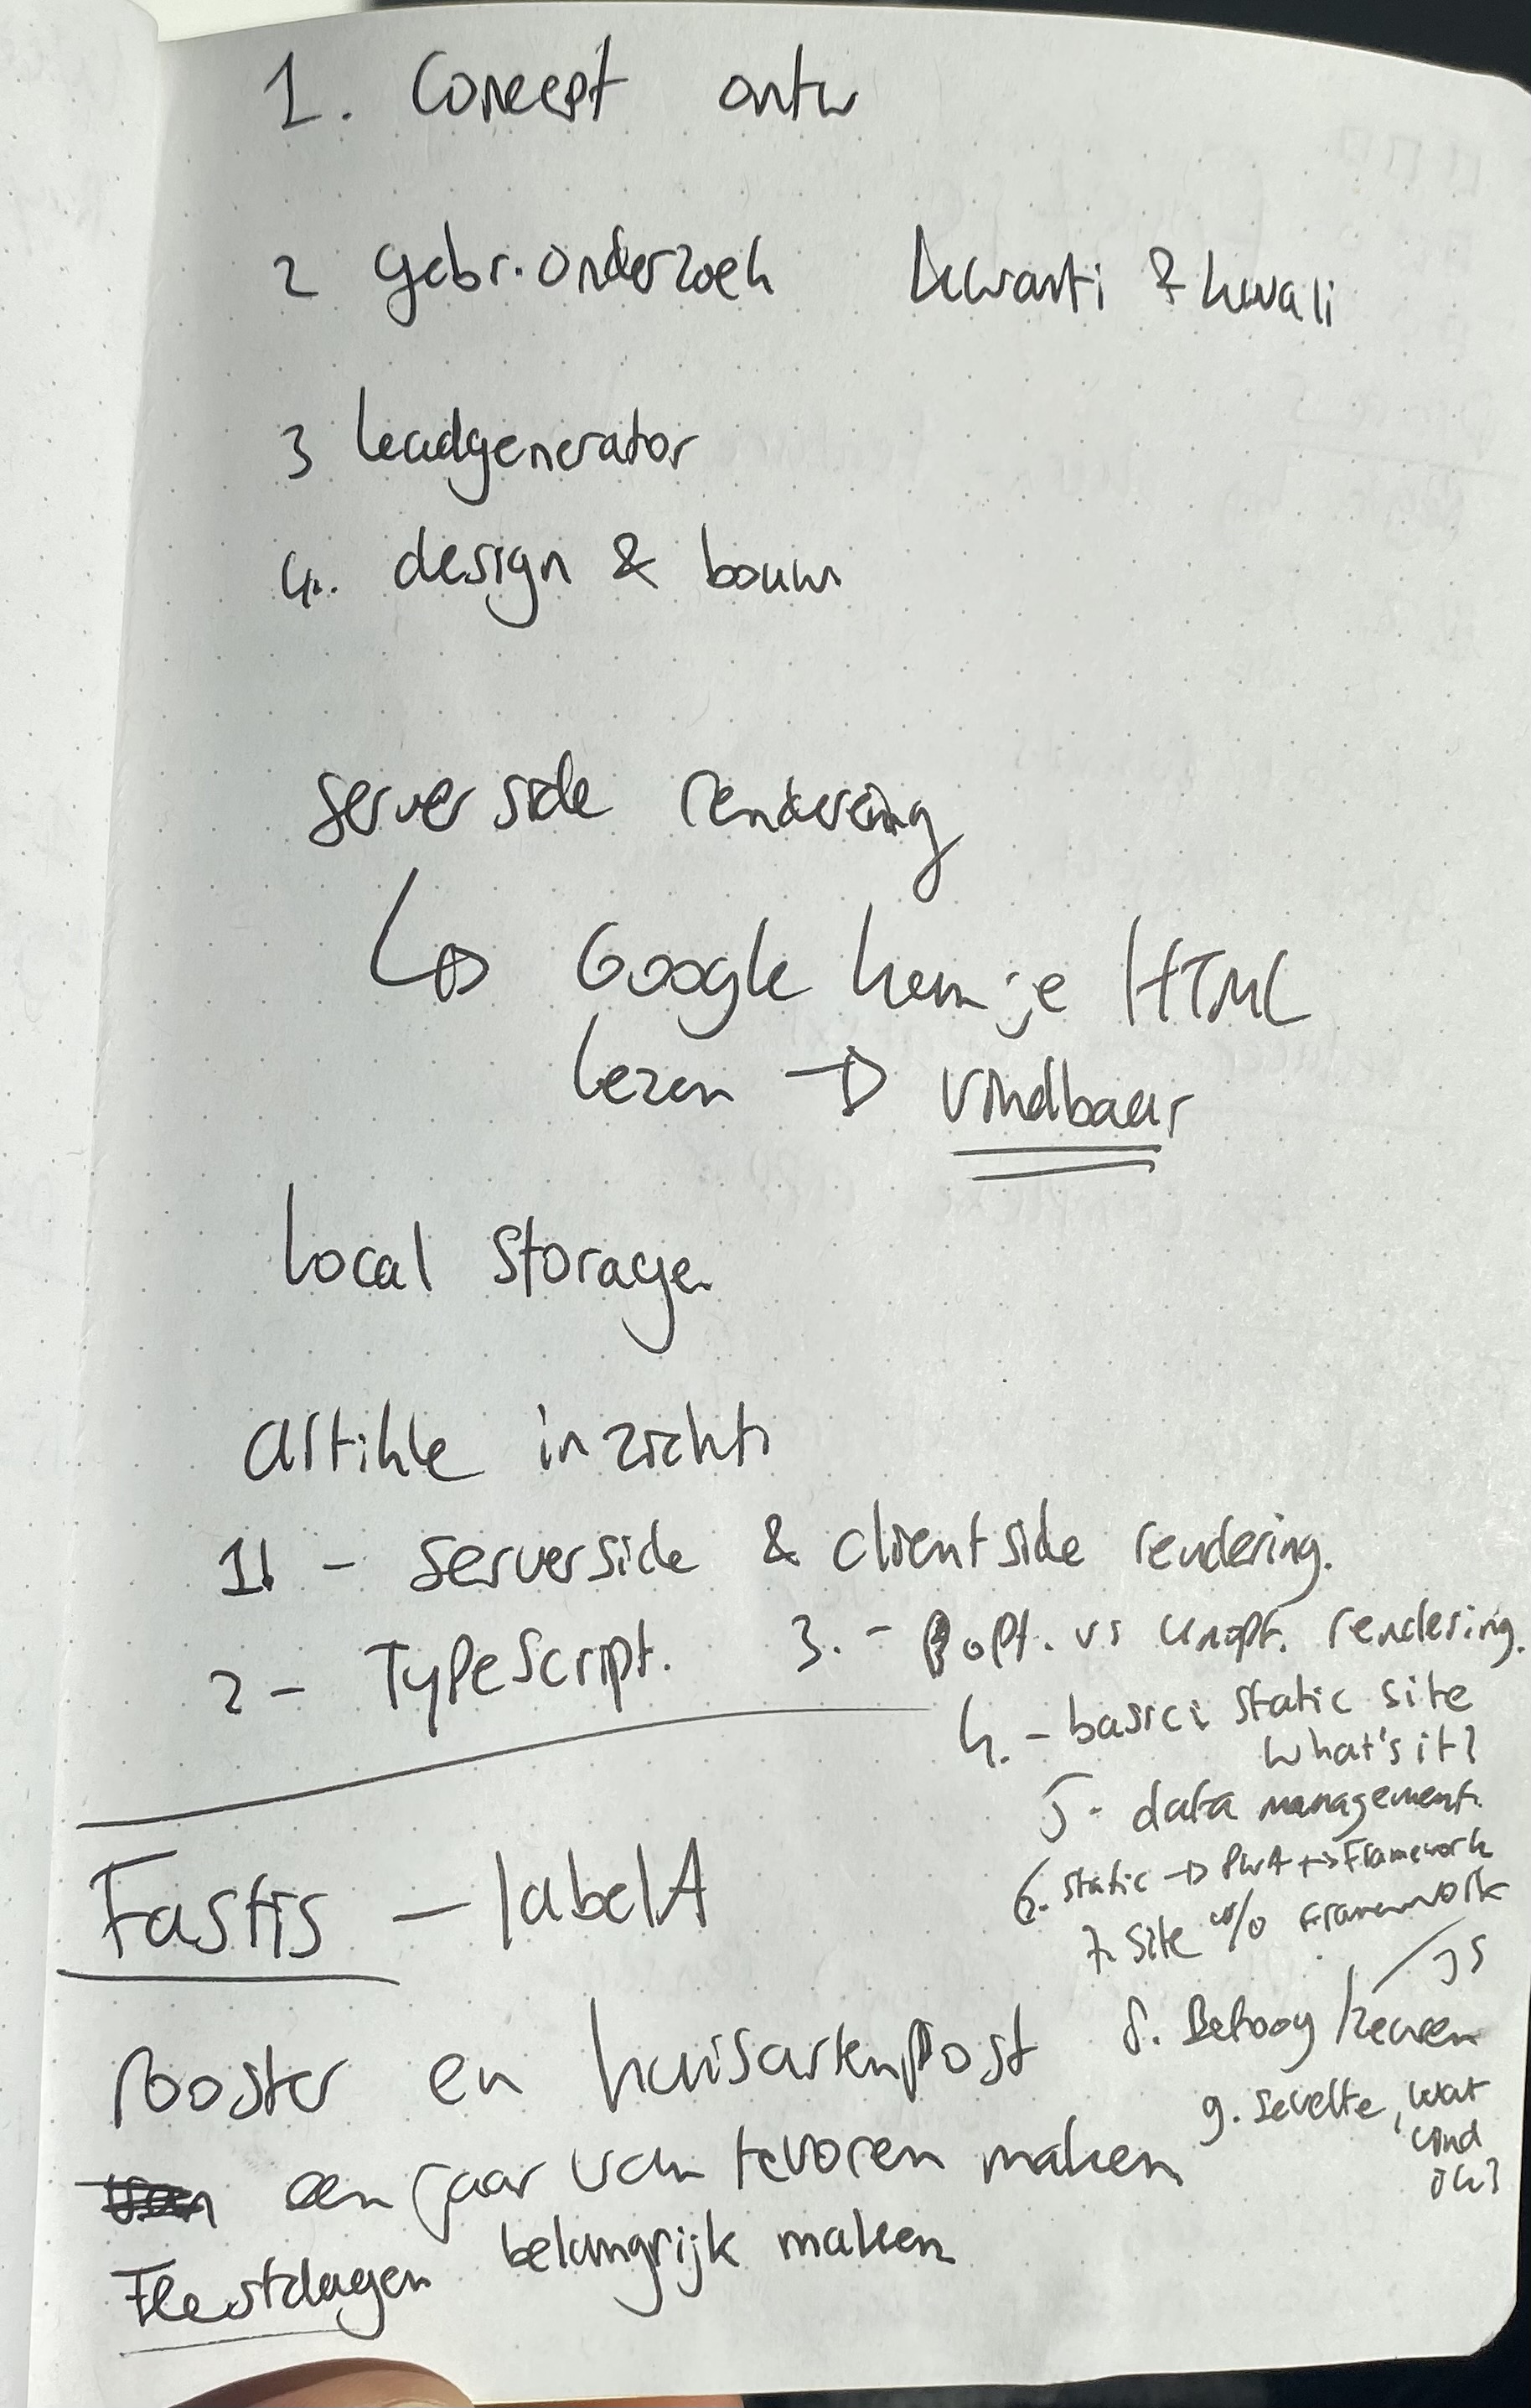 1. Concept ontw
2 gebr. onderzoek kwanti & kwali
3 leadgenerator
4. design & bouw
server side rendering
↳ Google kan je HTML
lezen → vindbaar
Local storage
artikle inzicht
1 - serverside & clientside rendering.
2 - TypeScript. 3. - opt. vs unopt. rendering.
4. - basic static site
what's it?
5. data management
6. static → PWA ↔ Framework
7. Site w/o Framework
JS
8. Betoog / keuzen
9. Sevelte, wat
vind
ik?
Fastis - labelA
rooster en huisartenpost
een jaar van tevoren maken
Feestdagen belangrijk maken